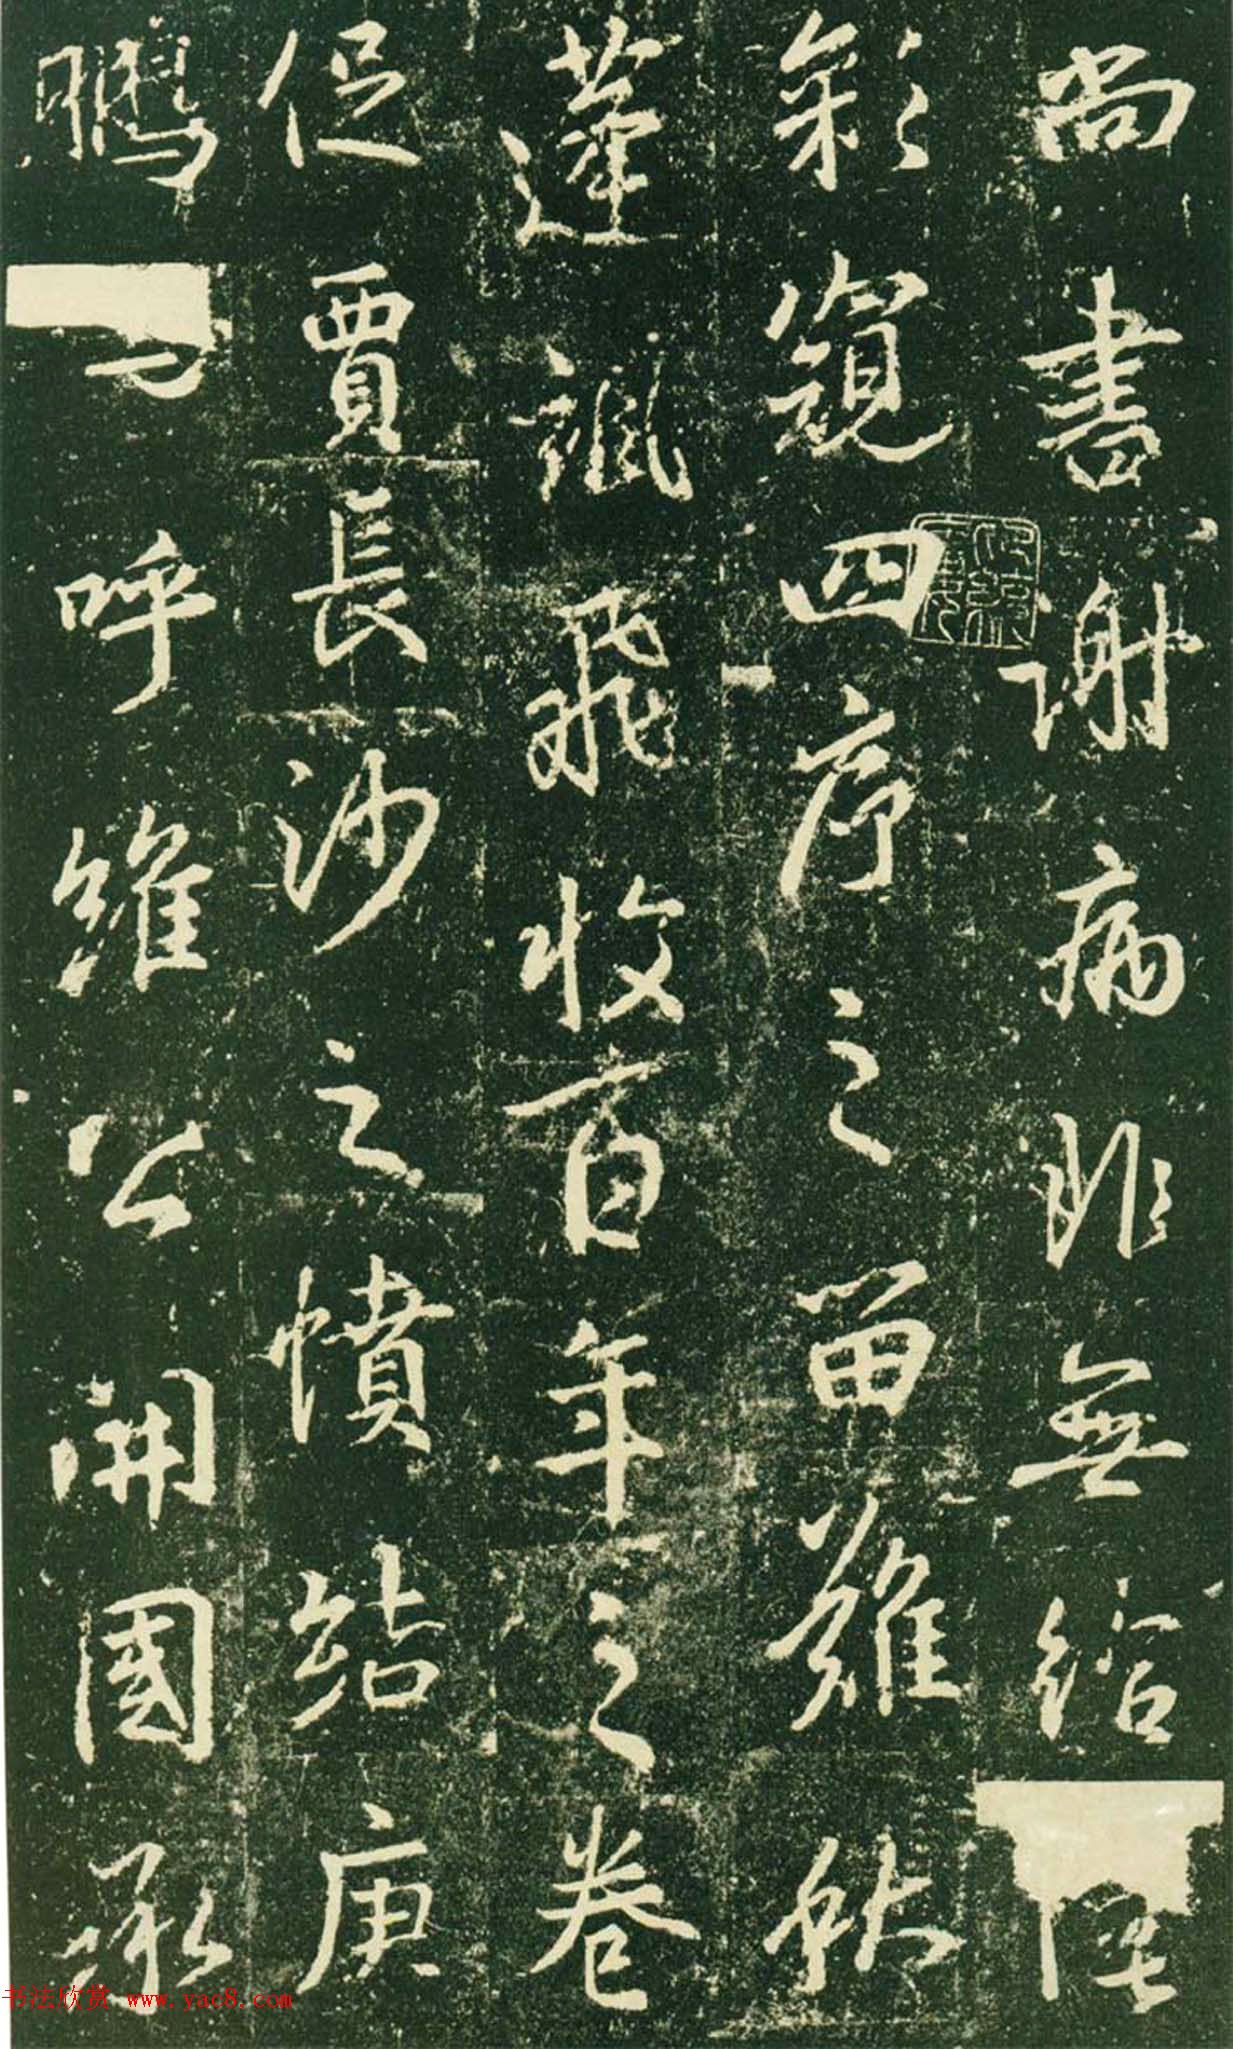 尚書謝病非無給
彩窺四序之留難就
蓬詆飛收百年之卷
促賈長沙之憤結庚
鵬
呼維公開國承
书法欣赏 www.yac8.com